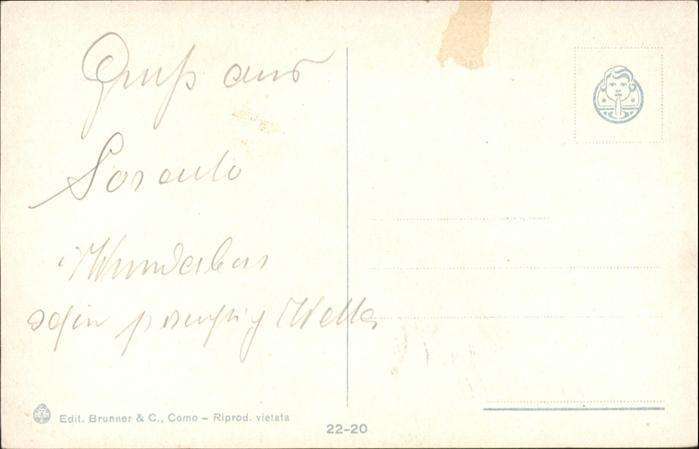 Gruß aus
Sorento
Wunderbar
Edit. Brunner & C., Como – Riprod. vietata
22-20